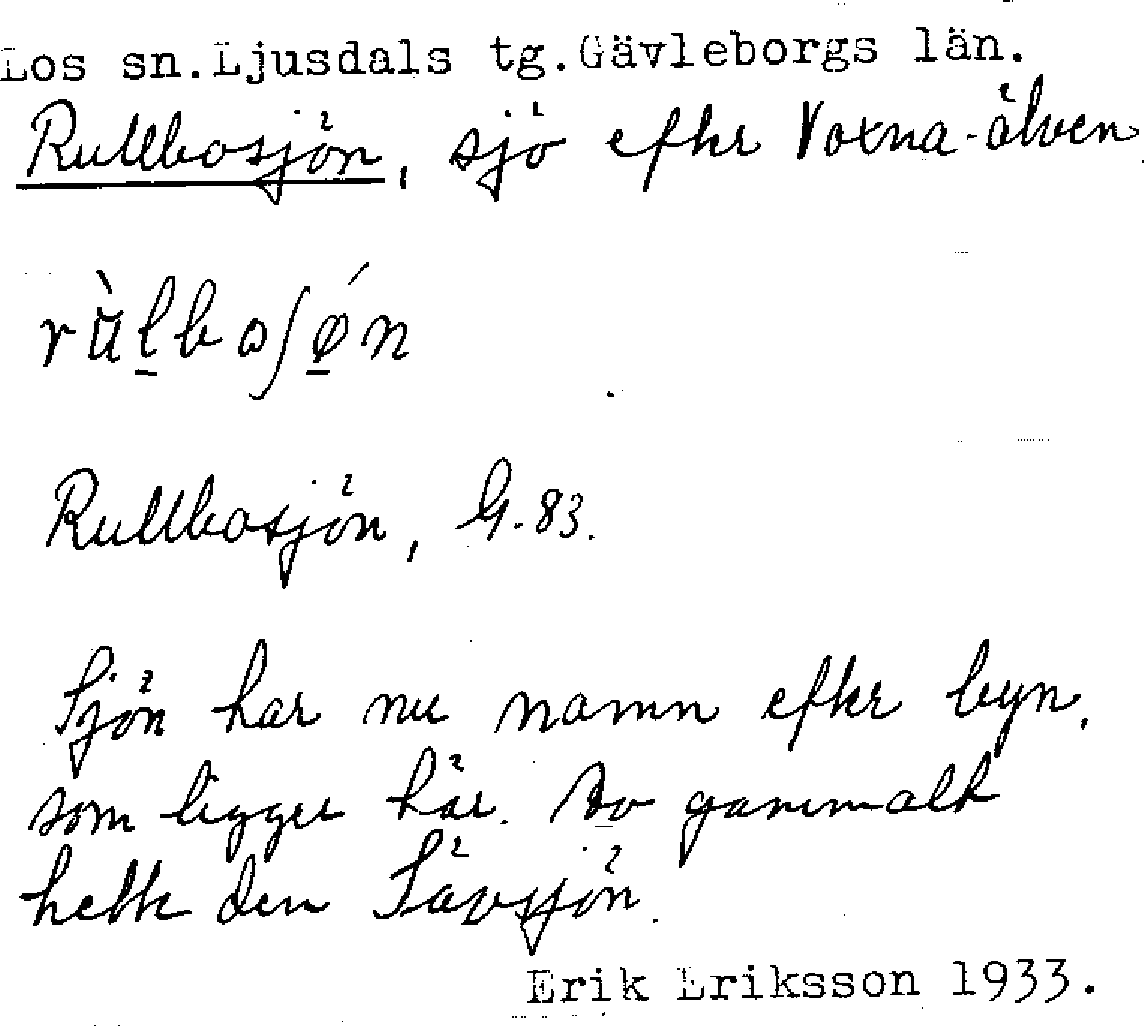 Los sn. Ljusdals tg. Gävleborgs län.
Rullbosjön, sjö efter Voxna-älven
Rullbosjön, G. 83.
Sjön har nu namn efter byn,
som ligger här. Av gammalt
hette den Sävsjön.
Erik Eriksson 1933.